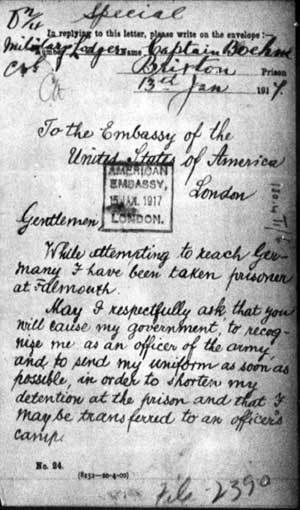 Special
In replying to this letter, please write on the envelope:—
Number Military Lodger Name Captain Boehme
Brixton Prison
13th Jan 1917.
To the Embassy of the
United States of America
London
AMERICAN
EMBASSY,
15 JAN. 1917
LONDON.
Gentlemen
While attempting to reach Ger-
many I have been taken prisoner
at Falmouth.
May I respectfully ask that you
will cause my government, to recog-
nise me as an officer of the army,
and to send my uniform as soon as
possible, in order to shorten my
detention at the prison and that I
may be transferred to an officer's
camp.
No. 24.
(8252—20-4-00)
File-2390